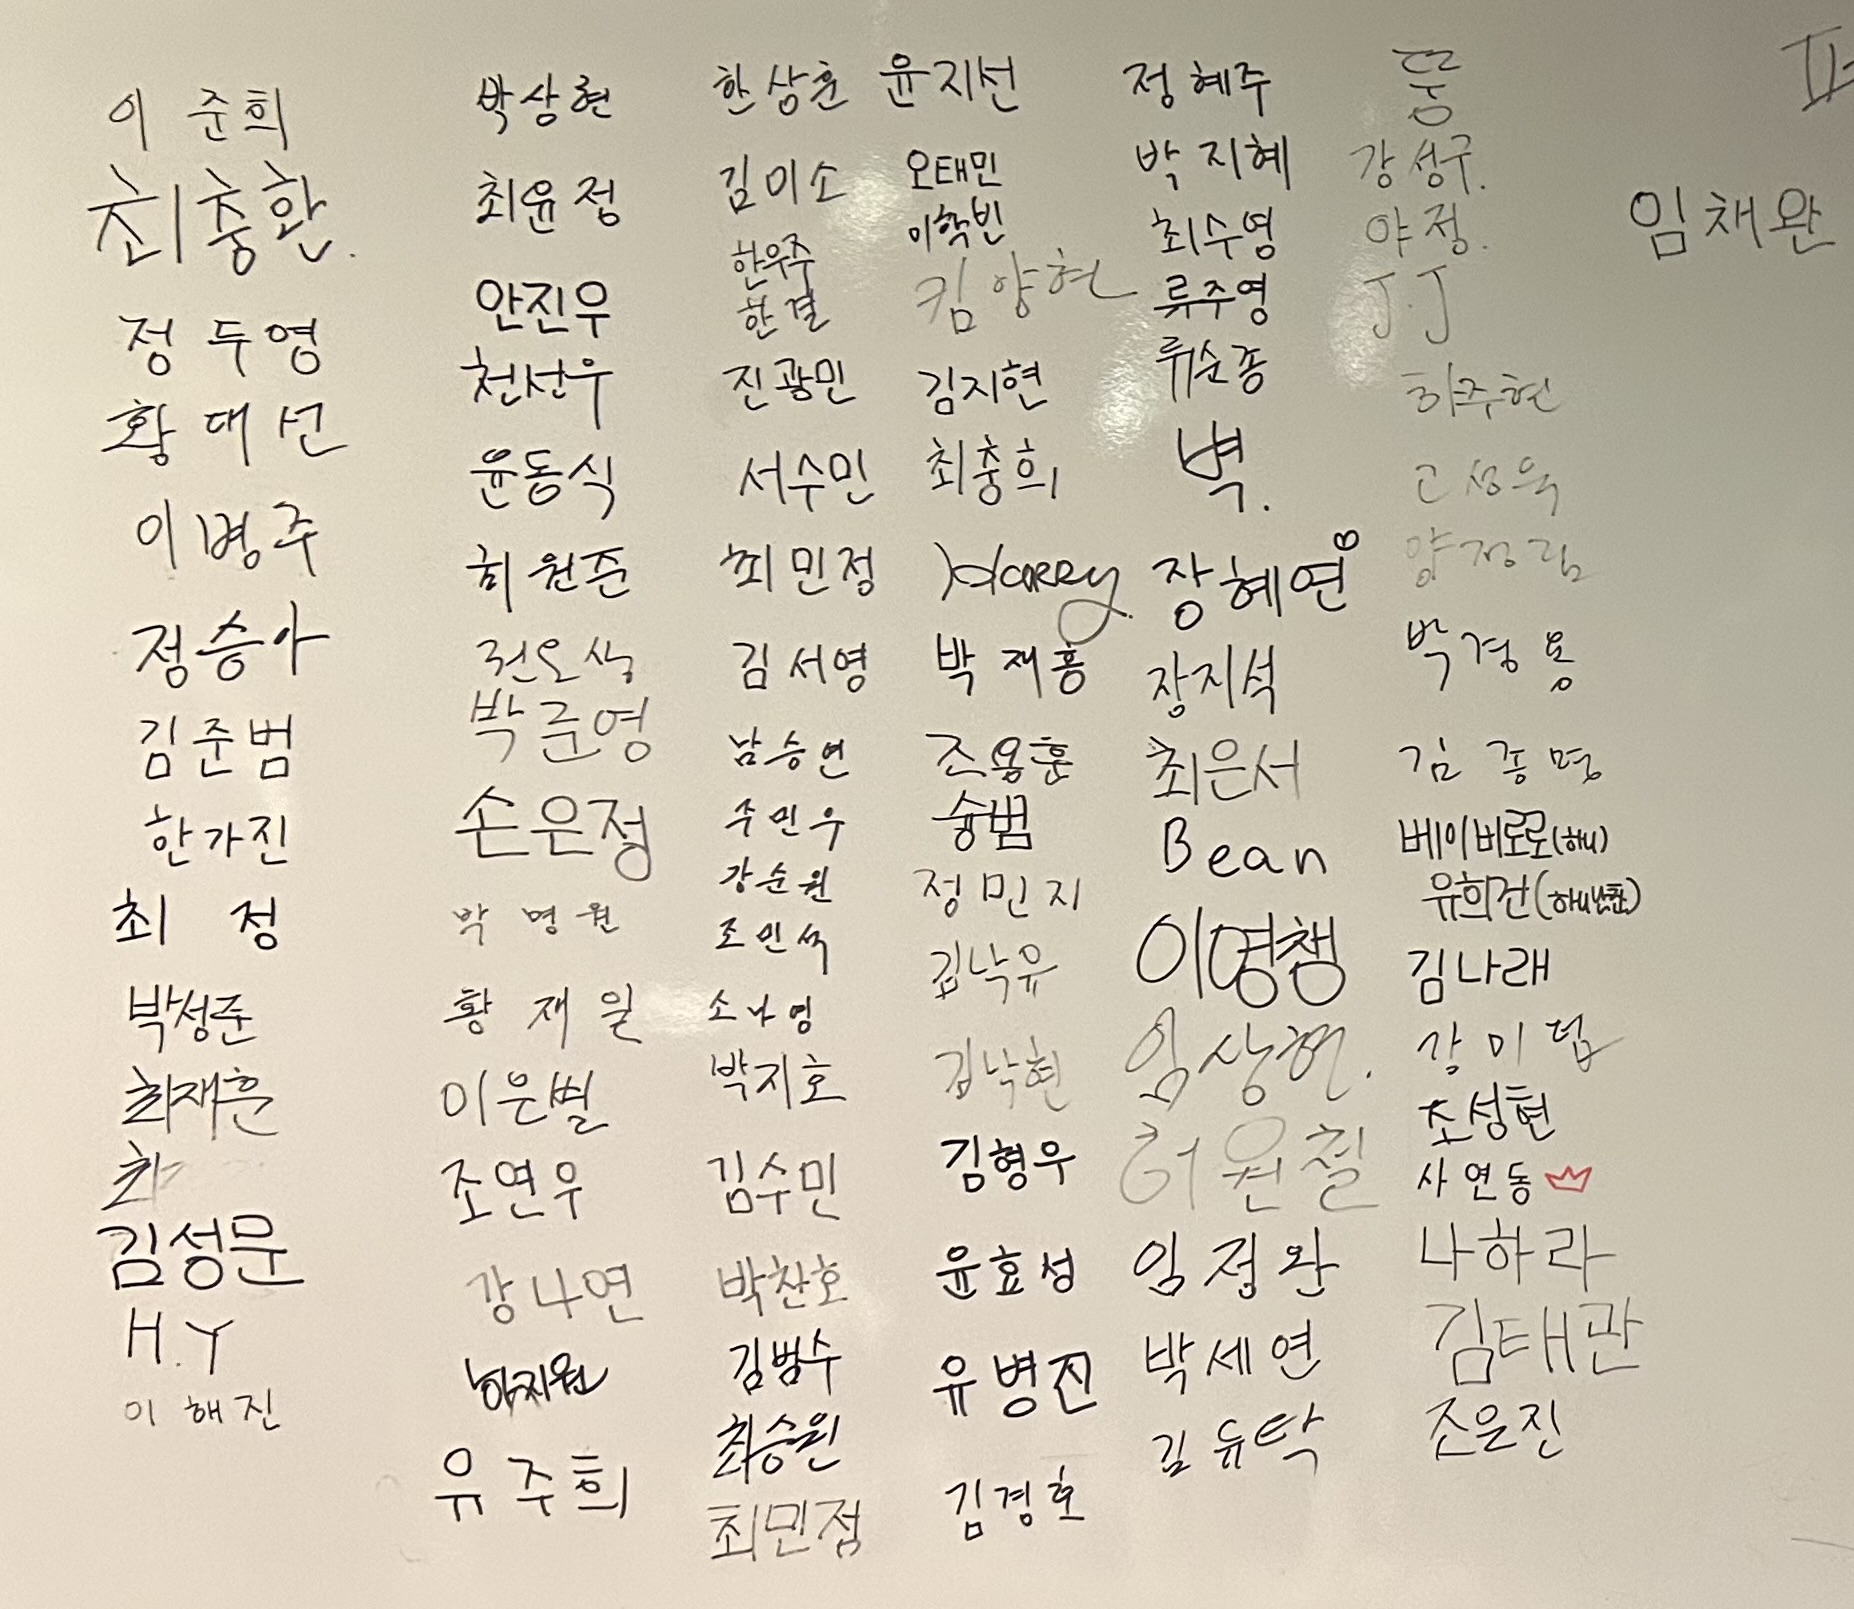 이준희
최충환.
정두영
황대선
이병주
정승아
김준범
한가진
최정
박성준
최재훈
최
김성문
H.Y
이해진
박상현
최윤정
안진우
천선우
윤동식
최원준
박준영
손은정
박명원
황재일
이은별
조연우
강나연
유주희
한상훈
김미소
한우주
한결
진광민
서수민
최민정
김서영
남승연
주민우
강순원
조민석
소나영
박지호
김수민
박찬호
김범수
최승원
최민점
윤지선
오태민
이학빈
킴양현
김지현
최충희
Harry.
박재홍
조용훈
승범
정민지
김낙유
김낙현
김형우
윤효성
유병진
김경호
정혜주
박지혜
최수영
류주영
류순종
벽.
장혜연
장지석
최은서
Bean
이영챙
임상현.
허원칠
임정완
박세연
김듀탁
뚱
강성구.
야정.
J.J
하주현
고성욱
양정림
박경용
김종명
베이비로로(하니)
유희건
김나래
강미덥
조성현
사연동
나하라
김태관
조은진
임채완